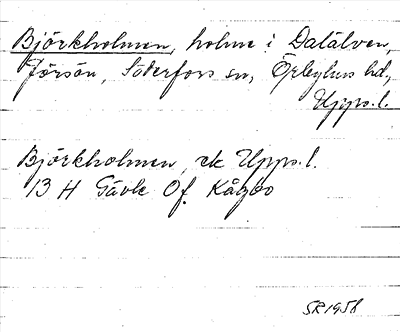 Björkholmen, holme i Dalälven,
Jörsön, Söderfors sn, Örbyhus hd,
Upps.l.
Björkholmen, ek Upps.l.
13 H Gävle Of Kågbo
SR 1958